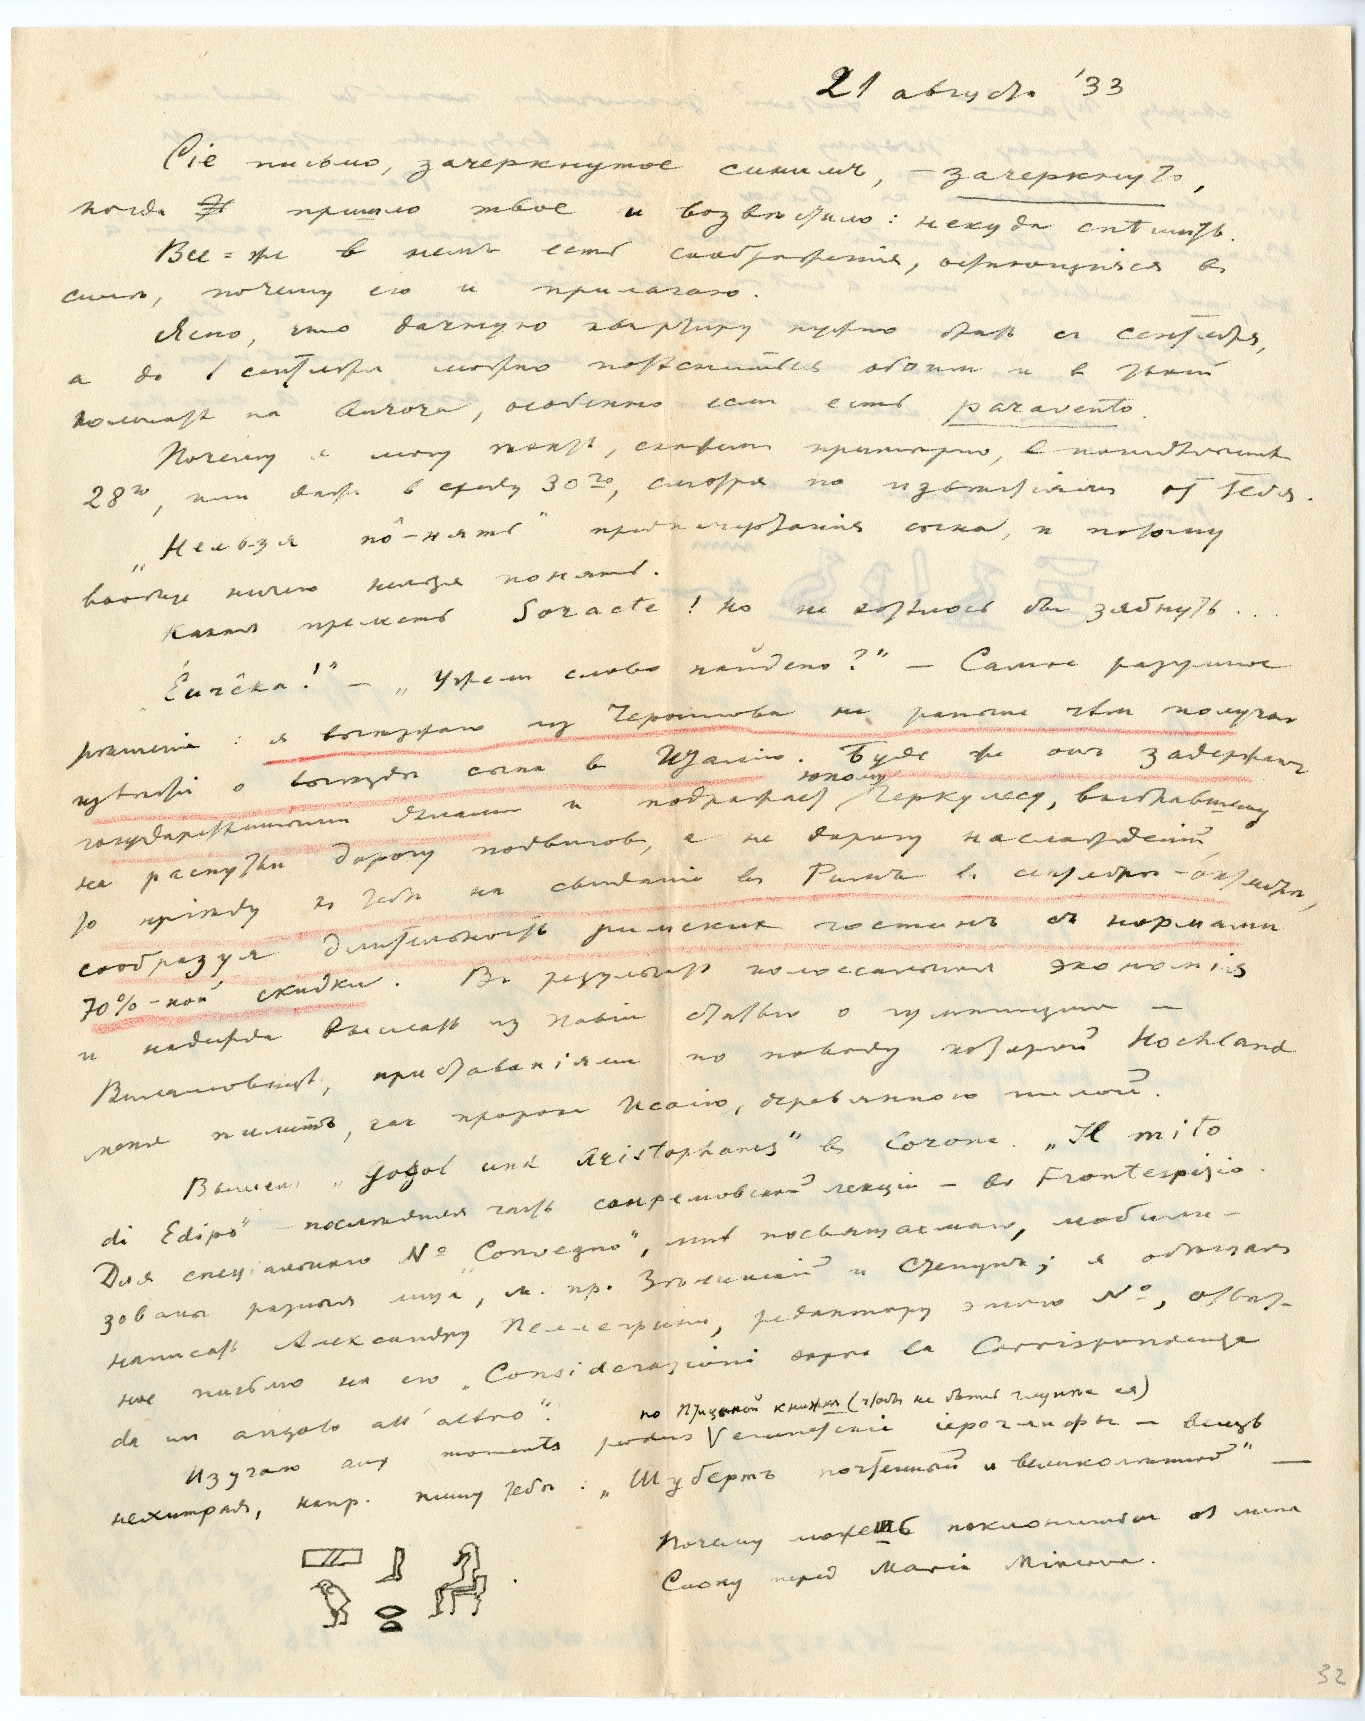 21 августа '33
Сіе письмо, зачеркнутое синимъ, – зачеркнуто,
когда пришло твое и возвѣстило: некуда спѣшить.
Все-же в немъ есть соображенія, остающіяся в
силѣ, почему его и прилагаю.
Ясно, что дачную квартиру нужно взять с сентября,
а до 1 сентября можно потѣсниться обоим и в твоей
комнатѣ на Aurora, особенно если есть paravento.
Почему я могу выѣхать, скажем примѣрно, в понедѣльник
28го, или даже в среду 30го, смотря по извѣстіям от тебя.
„Нельзя по-нять" предначертанія сына, и потому
вообще ничего нельзя понять.
Какая прелесть Soracte! Но не хотѣлось бы зябнуть...
Eurêka!" – „Ужели слово найдено?" – Самое разумное
рѣшеніе: я выѣзжаю из Черноббіо не раньше чѣм получаю
извѣстіе о выѣздѣ сына в Италію. Буде же он задержан
государственными дѣлами и подражает юному Геркулесу, выбравшему
на распутьи дорогу подвигов, а не дорогу наслажденій,
то пріѣду к тебѣ на свиданіе въ Римъ в сентябрѣ-октябрѣ,
сообразуя длительность римских гостинъ съ нормами
70%-ной скидки. В результатѣ колоссальная экономія
и надежда выслать из Павіи статью о гуманизмѣ и
Виламовицѣ, приставаніями по поводу которой Hochland
меня пилитъ, как пророка Исаію, деревянною пилой.
Вышел „Gogol und Aristophanes" в Corona. „Il mito
di Edipo" – послѣдняя часть санремовской лекціи – во Frontespizio.
Для спеціальнаго № „Convegno", мнѣ посвящаемаго, мобили-
зованы разныя лица, м. пр. Зѣлинскій и Степунъ; я обѣщал
написать Александру Пеллегрини, редактору этого №, отвѣт-
ное письмо на его „Considerazioni sopra la Corrispondenza
da un angolo all' altro".
Изучаю aux moments perdus по Птицыной книжкѣ (чтобъ не быть глупѣе ея) Египетскіе іероглифы – вещь
нехитрая, напр. пишу тебѣ: „Шуберт почтенный и великолѣпный" –
Почему можешь поклониться от меня
Слону перед Maria Minerva.
32